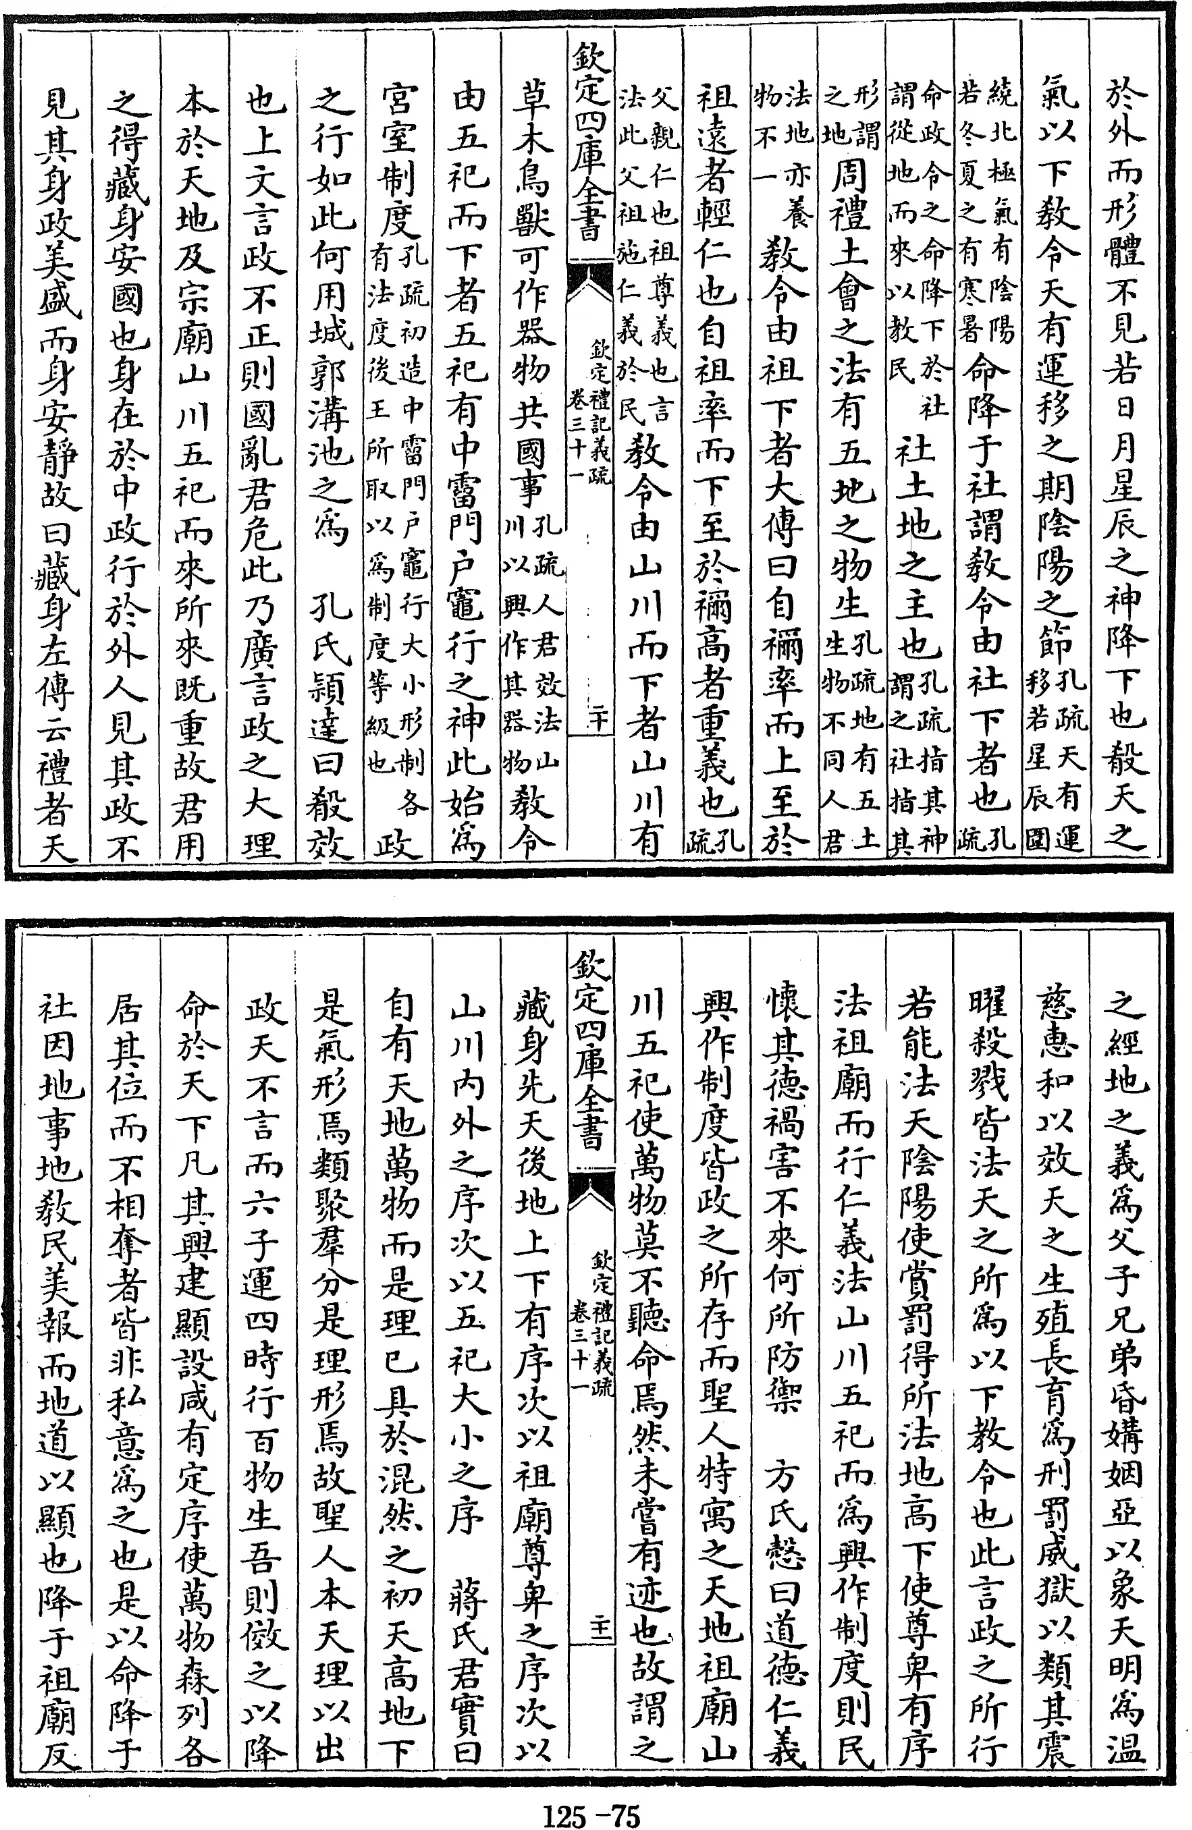 於外而形體不見若日月星辰之神降下也殽天之
氣以下教令天有運移之期陰陽之節孔疏天有運移若星辰圍
繞北極氣有陰陽若冬夏之有寒暑命降于社謂教令由社下者也孔疏
命政令之命降下於社謂從地而來以教民社土地之主也孔疏指其神謂之社指其
形謂之地周禮土會之法有五地之物生孔疏地有五土生物不同人君
法地亦養物不一教令由祖下者大傳曰自禰率而上至於
祖遠者輕仁也自祖率而下至於禰高者重義也孔疏
父親仁也祖尊義也言法此父祖施仁義於民教令由山川而下者山川有
欽定四庫全書
欽定禮記義疏
卷三十一
二十
草木鳥獸可作器物共國事孔疏人君效法山川以興作其器物教令
由五祀而下者五祀有中霤門戶竈行之神此始為
宮室制度孔疏初造中霤門戶竈行大小形制各有法度後王所取以為制度等級也政
之行如此何用城郭溝池之為　孔氏穎達曰殽效
也上文言政不正則國亂君危此乃廣言政之大理
本於天地及宗廟山川五祀而來所來既重故君用
之得藏身安國也身在於中政行於外人見其政不
見其身政美盛而身安靜故曰藏身左傳云禮者天
之經地之義為父子兄弟昏媾姻亞以象天明為溫
慈惠和以效天之生殖長育為刑罰威獄以類其震
曜殺戮皆法天之所為以下教令也此言政之所行
若能法天陰陽使賞罰得所法地高下使尊卑有序
法祖廟而行仁義法山川五祀而為興作制度則民
懷其德禍害不來何所防禦　方氏慤曰道德仁義
興作制度皆政之所存而聖人特寓之天地祖廟山
川五祀使萬物莫不聽命焉然未嘗有迹也故謂之
欽定四庫全書
欽定禮記義疏
卷三十一
二十一
藏身先天後地上下有序次以祖廟尊卑之序次以
山川內外之序次以五祀大小之序　蔣氏君實曰
自有天地萬物而是理已具於混然之初天高地下
是氣形焉類聚羣分是理形焉故聖人本天理以出
政天不言而六子運四時行百物生吾則倣之以降
命於天下凡其興建顯設咸有定序使萬物森列各
居其位而不相奪者皆非私意為之也是以命降于
社因地事地教民美報而地道以顯也降于祖廟反
125-75